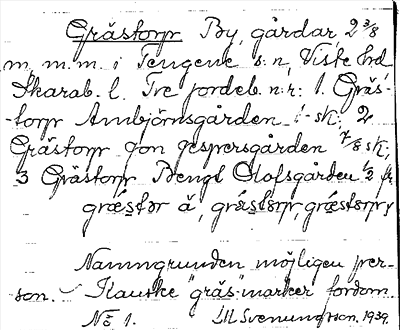 Grästorp By, gårdar 2 3/8
m. m. m. i Tengene s:n, Viste hd
Skarab. l. Tre jordeb. n:r: 1. Gräs-
-torp Ambjörnsgården 1 sk; 2
Grästorp Jon Jespersgården 7/8 sk,
3 Grästorp Bengt Olofsgården 1/2 fr,
græstər å, græstorp, græstorp
Namngrunden möjligen per-
son. Kanske "gräs"marker fordom.
No 1. Svenungsson. 1939.